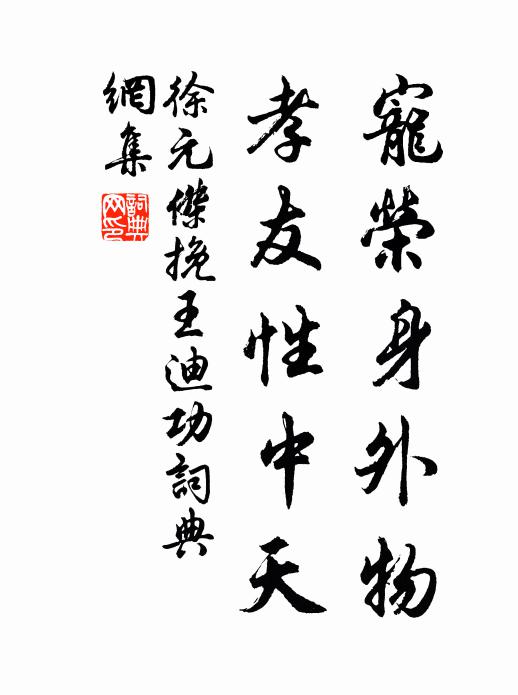 寵榮身外物
孝友性中天
徐元傑挽王迪功詞典
網集
詞典網印